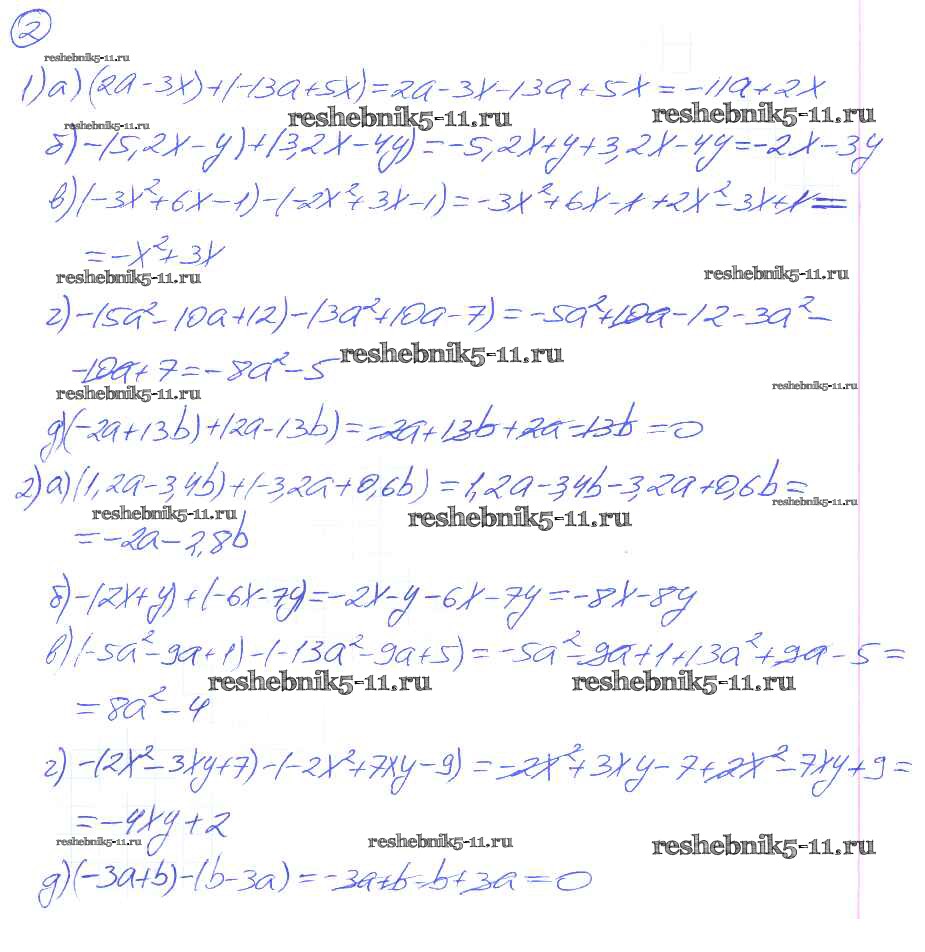 2
reshebnik5-11.ru
1) а) (2a - 3x) + (-13a + 5x) = 2a - 3x - 13a + 5x = -11a + 2x
reshebnik5-11.ru reshebnik5-11.ru reshebnik5-11.ru
б) -(5,2x - y) + (3,2x - 4y) = -5,2x + y + 3,2x - 4y = -2x - 3y
в) (-3x² + 6x - 1) - (-2x² + 3x - 1) = -3x² + 6x - 1 + 2x² - 3x + 1 =
= -x² + 3x
reshebnik5-11.ru reshebnik5-11.ru
г) -(5a² - 10a + 12) - (3a² + 10a - 7) = -5a² + 10a - 12 - 3a² -
reshebnik5-11.ru
-10a + 7 = -8a² - 5
reshebnik5-11.ru reshebnik5-11.ru
д) (-2a + 13b) + (2a - 13b) = -2a + 13b + 2a - 13b = 0
2) а) (1,2a - 3,4b) + (-3,2a + 0,6b) = 1,2a - 3,4b - 3,2a + 0,6b =
reshebnik5-11.ru reshebnik5-11.ru reshebnik5-11.ru
= -2a - 2,8b
б) -(2x + y) + (-6x - 7y) = -2x - y - 6x - 7y = -8x - 8y
в) (-5a² - 9a + 1) - (-13a² - 9a + 5) = -5a² - 9a + 1 + 13a² + 9a - 5 =
reshebnik5-11.ru reshebnik5-11.ru
= 8a² - 4
г) -(2x² - 3xy + 7) - (-2x² + 7xy - 9) = -2x² + 3xy - 7 + 2x² - 7xy + 9 =
= -4xy + 2
reshebnik5-11.ru reshebnik5-11.ru reshebnik5-11.ru
д) (-3a + b) - (b - 3a) = -3a + b - b + 3a = 0